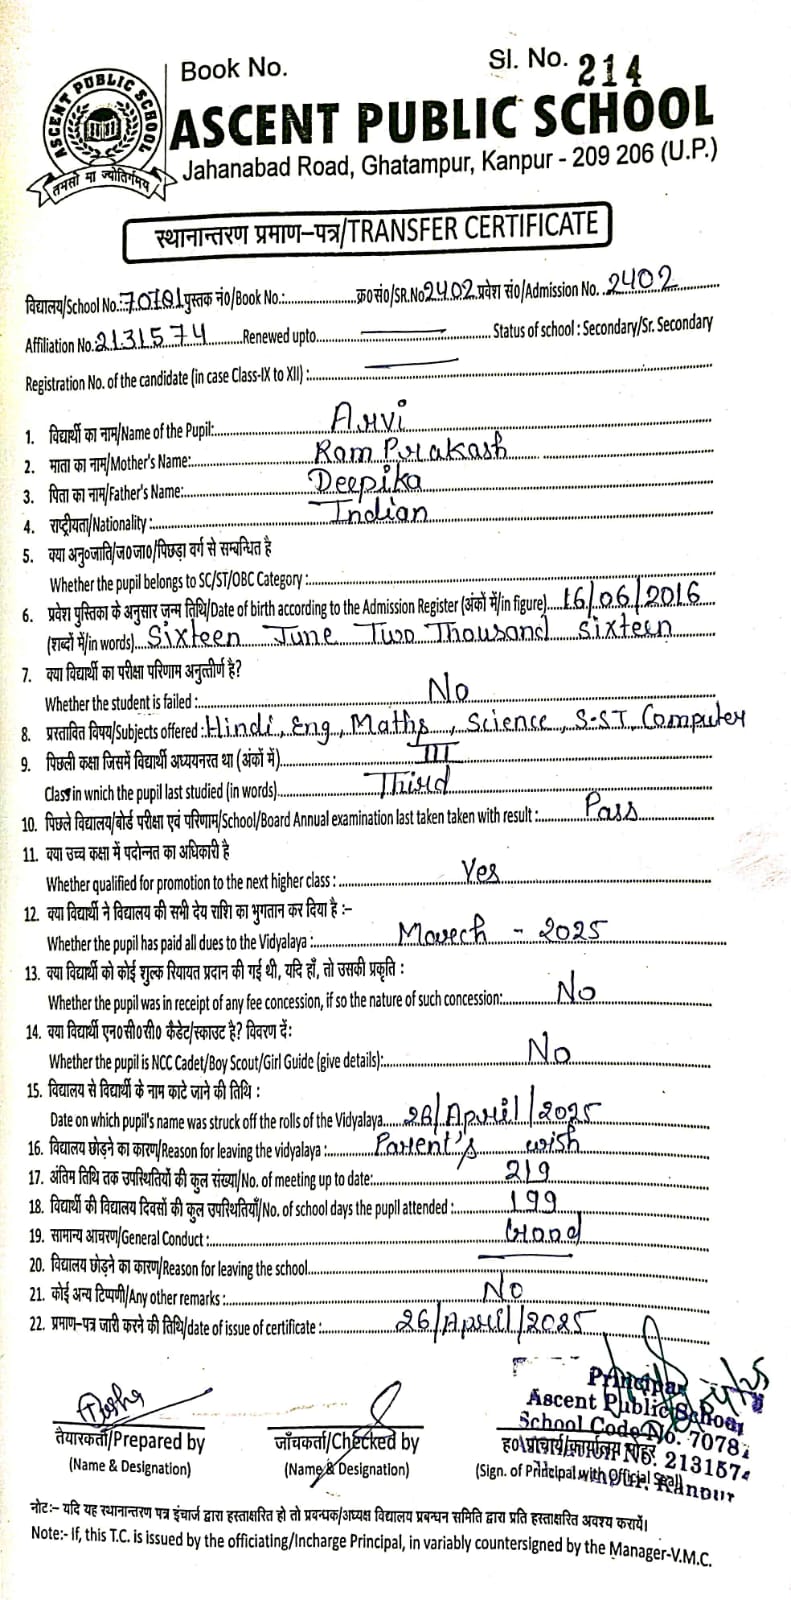 Book No.
Sl. No. 214
ASCENT PUBLIC SCHOOL
तमसो मा ज्योतिर्गमय
ASCENT PUBLIC SCHOOL
Jahanabad Road, Ghatampur, Kanpur - 209 206 (U.P.)
स्थानान्तरण प्रमाण-पत्र/TRANSFER CERTIFICATE
विद्यालय/School No.: 70781 पुस्तक नं०/Book No.: क्र०सं०/SR.No 2402 प्रवेश सं०/Admission No. 2402
Affiliation No: 2131574 Renewed upto Status of school : Secondary/Sr. Secondary
Registration No. of the candidate (in case Class-IX to XII) :
1. विद्यार्थी का नाम/Name of the Pupil: Arvi
2. माता का नाम/Mother's Name: Ram Prakash
3. पिता का नाम/Father's Name: Deepika
4. राष्ट्रीयता/Nationality : Indian
5. क्या अनु०जाति/ज०जा०/पिछड़ा वर्ग से सम्बन्धित है
Whether the pupil belongs to SC/ST/OBC Category :
6. प्रवेश पुस्तिका के अनुसार जन्म तिथि/Date of birth according to the Admission Register (अंकों में/in figure) 16/06/2016
(शब्दों में/in words) Sixteen June Two Thousand Sixteen
7. क्या विद्यार्थी का परीक्षा परिणाम अनुत्तीर्ण है?
Whether the student is failed : No
8. प्रस्तावित विषय/Subjects offered : Hindi, Eng, Maths, Science, S-ST, Computer
9. पिछली कक्षा जिसमें विद्यार्थी अध्ययनरत था (अंकों में) III
Class in wnich the pupil last studied (in words) Third
10. पिछले विद्यालय/बोर्ड परीक्षा एवं परिणाम/School/Board Annual examination last taken taken with result : Pass
11. क्या उच्च कक्षा में पदोन्नत का अधिकारी है
Whether qualified for promotion to the next higher class : Yes
12. क्या विद्यार्थी ने विद्यालय की सभी देय राशि का भुगतान कर दिया है :-
Whether the pupil has paid all dues to the Vidyalaya : March - 2025
13. क्या विद्यार्थी को कोई शुल्क रियायत प्रदान की गई थी, यदि हाँ, तो उसकी प्रकृति :
Whether the pupil was in receipt of any fee concession, if so the nature of such concession: No
14. क्या विद्यार्थी एन०सी०सी० कैडेट/स्काउट है? विवरण दें:
Whether the pupil is NCC Cadet/Boy Scout/Girl Guide (give details): No
15. विद्यालय से विद्यार्थी के नाम काटे जाने की तिथि :
Date on which pupil's name was struck off the rolls of the Vidyalaya 26/April/2025
16. विद्यालय छोड़ने का कारण/Reason for leaving the vidyalaya : Parent's wish
17. अंतिम तिथि तक उपस्थितियों की कुल संख्या/No. of meeting up to date: 219
18. विद्यार्थी की विद्यालय दिवसों की कुल उपस्थितियाँ/No. of school days the pupil attended : 199
19. सामान्य आचरण/General Conduct : Good
20. विद्यालय छोड़ने का कारण/Reason for leaving the school
21. कोई अन्य टिप्पणी/Any other remarks : No
22. प्रमाण-पत्र जारी करने की तिथि/date of issue of certificate : 26/April/2025
Principal
Ascent Public School
School Code No. 70781
No. 2131574
Kanpur
तैयारकर्ता/Prepared by
(Name & Designation)
जाँचकर्ता/Checked by
(Name & Designation)
ह० प्राचार्य/कार्यालय मोहर
(Sign. of Principal with Official Seal)
नोटः- यदि यह स्थानान्तरण पत्र इंचार्ज द्वारा हस्ताक्षरित हो तो प्रबन्धक/अध्यक्ष विद्यालय प्रबन्धन समिति द्वारा प्रति हस्ताक्षरित अवश्य करायें।
Note:- If, this T.C. is issued by the officiating/Incharge Principal, in variably countersigned by the Manager-V.M.C.